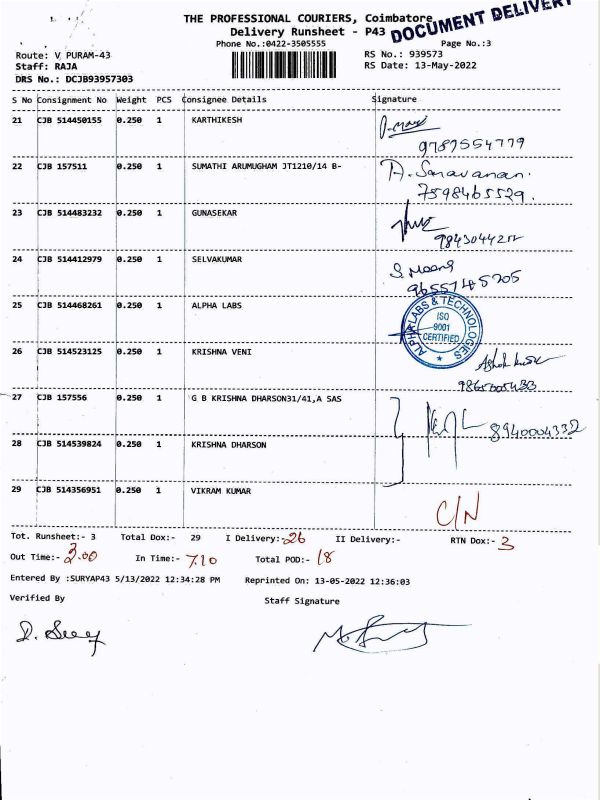 THE PROFESSIONAL COURIERS, Coimbatore
DOCUMENT DELIVERY
Delivery Runsheet - P43
Phone No.:0422-3505555
Page No.:3
Route: V PURAM-43
RS No.: 939573
Staff: RAJA
RS Date: 13-May-2022
DRS No.: DCJB93957303
S No Consignment No Weight PCS Consignee Details Signature
21 CJB 514450155 0.250 1 KARTHIKESH
9787554779
22 CJB 157511 0.250 1 SUMATHI ARUMUGHAM JT1210/14 B- A. Saravanan.
7598465529.
23 CJB 514483232 0.250 1 GUNASEKAR
24 CJB 514412979 0.250 1 SELVAKUMAR
25 CJB 514468261 0.250 1 ALPHA LABS
ALPHA LABS & TECHNOLOGIES
ISO
9001
CERTIFIED
26 CJB 514523125 0.250 1 KRISHNA VENI
27 CJB 157556 0.250 1 G B KRISHNA DHARSON31/41,A SAS
8940004332
28 CJB 514539824 0.250 1 KRISHNA DHARSON
29 CJB 514356951 0.250 1 VIKRAM KUMAR
C/N
Tot. Runsheet:- 3 Total Dox:- 29 I Delivery:- 26 II Delivery:- RTN Dox:- 3
Out Time:- 2.00 In Time:- 7.10 Total POD:- 18
Entered By :SURYAP43 5/13/2022 12:34:28 PM Reprinted On: 13-05-2022 12:36:03
Verified By Staff Signature